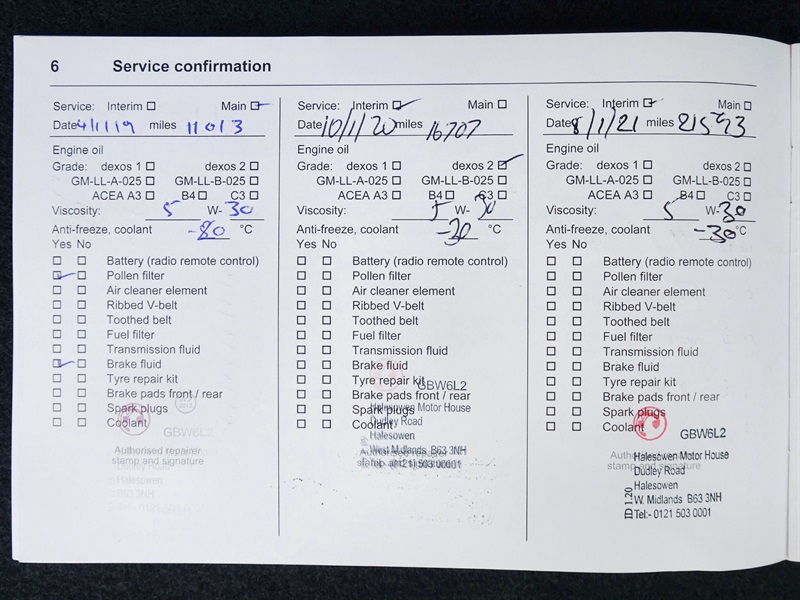 6 Service confirmation
Service: Interim ☐ Main ☑
Date 4/1/19 miles 11013
Engine oil
Grade: dexos 1 ☐ dexos 2 ☐
GM-LL-A-025 ☐ GM-LL-B-025 ☐
ACEA A3 ☐ B4 ☐ C3 ☐
Viscosity: 5 W-30
Anti-freeze, coolant °C
Yes No
☐ ☐ Battery (radio remote control)
☑ ☐ Pollen filter
☐ ☐ Air cleaner element
☐ ☐ Ribbed V-belt
☐ ☐ Toothed belt
☐ ☐ Fuel filter
☐ ☐ Transmission fluid
☑ ☐ Brake fluid
☐ ☐ Tyre repair kit
☐ ☐ Brake pads front / rear
☐ ☐ Spark plugs
☐ ☐ Coolant
GBW6L2
Authorised repairer
stamp and signature
Dudley Road
Halesowen
B63 3NH
0121 503 0001
Service: Interim ☑ Main ☐
Date 10/1/20 miles 16707
Engine oil
Grade: dexos 1 ☐ dexos 2 ☑
GM-LL-A-025 ☐ GM-LL-B-025 ☐
ACEA A3 ☐ B4 ☐ C3 ☐
Viscosity: 5 W-30
Anti-freeze, coolant -30 °C
Yes No
☐ ☐ Battery (radio remote control)
☐ ☐ Pollen filter
☐ ☐ Air cleaner element
☐ ☐ Ribbed V-belt
☐ ☐ Toothed belt
☐ ☐ Fuel filter
☐ ☐ Transmission fluid
☐ ☐ Brake fluid
☐ ☐ Tyre repair kit
GBW6L2
☐ ☐ Brake pads front / rear
☐ ☐ Spark plugs
Halesowen Motor House
☐ ☐ Coolant
Dudley Road
Halesowen
West Midlands B63 3NH
Authorised repairer
stamp and signature
0121 503 0001
Service: Interim ☑ Main ☐
Date 8/1/21 miles 21593
Engine oil
Grade: dexos 1 ☐ dexos 2 ☐
GM-LL-A-025 ☐ GM-LL-B-025 ☐
ACEA A3 ☐ B4 ☐ C3 ☐
Viscosity: 5 W-30
Anti-freeze, coolant -30 °C
Yes No
☐ ☐ Battery (radio remote control)
☐ ☐ Pollen filter
☐ ☐ Air cleaner element
☐ ☐ Ribbed V-belt
☐ ☐ Toothed belt
☐ ☐ Fuel filter
☐ ☐ Transmission fluid
☐ ☐ Brake fluid
☐ ☐ Tyre repair kit
☐ ☐ Brake pads front / rear
☐ ☐ Spark plugs
☐ ☐ Coolant
GBW6L2
Authorised repairer
stamp and signature
Halesowen Motor House
Dudley Road
Halesowen
W. Midlands B63 3NH
Tel:- 0121 503 0001
ID 1.20